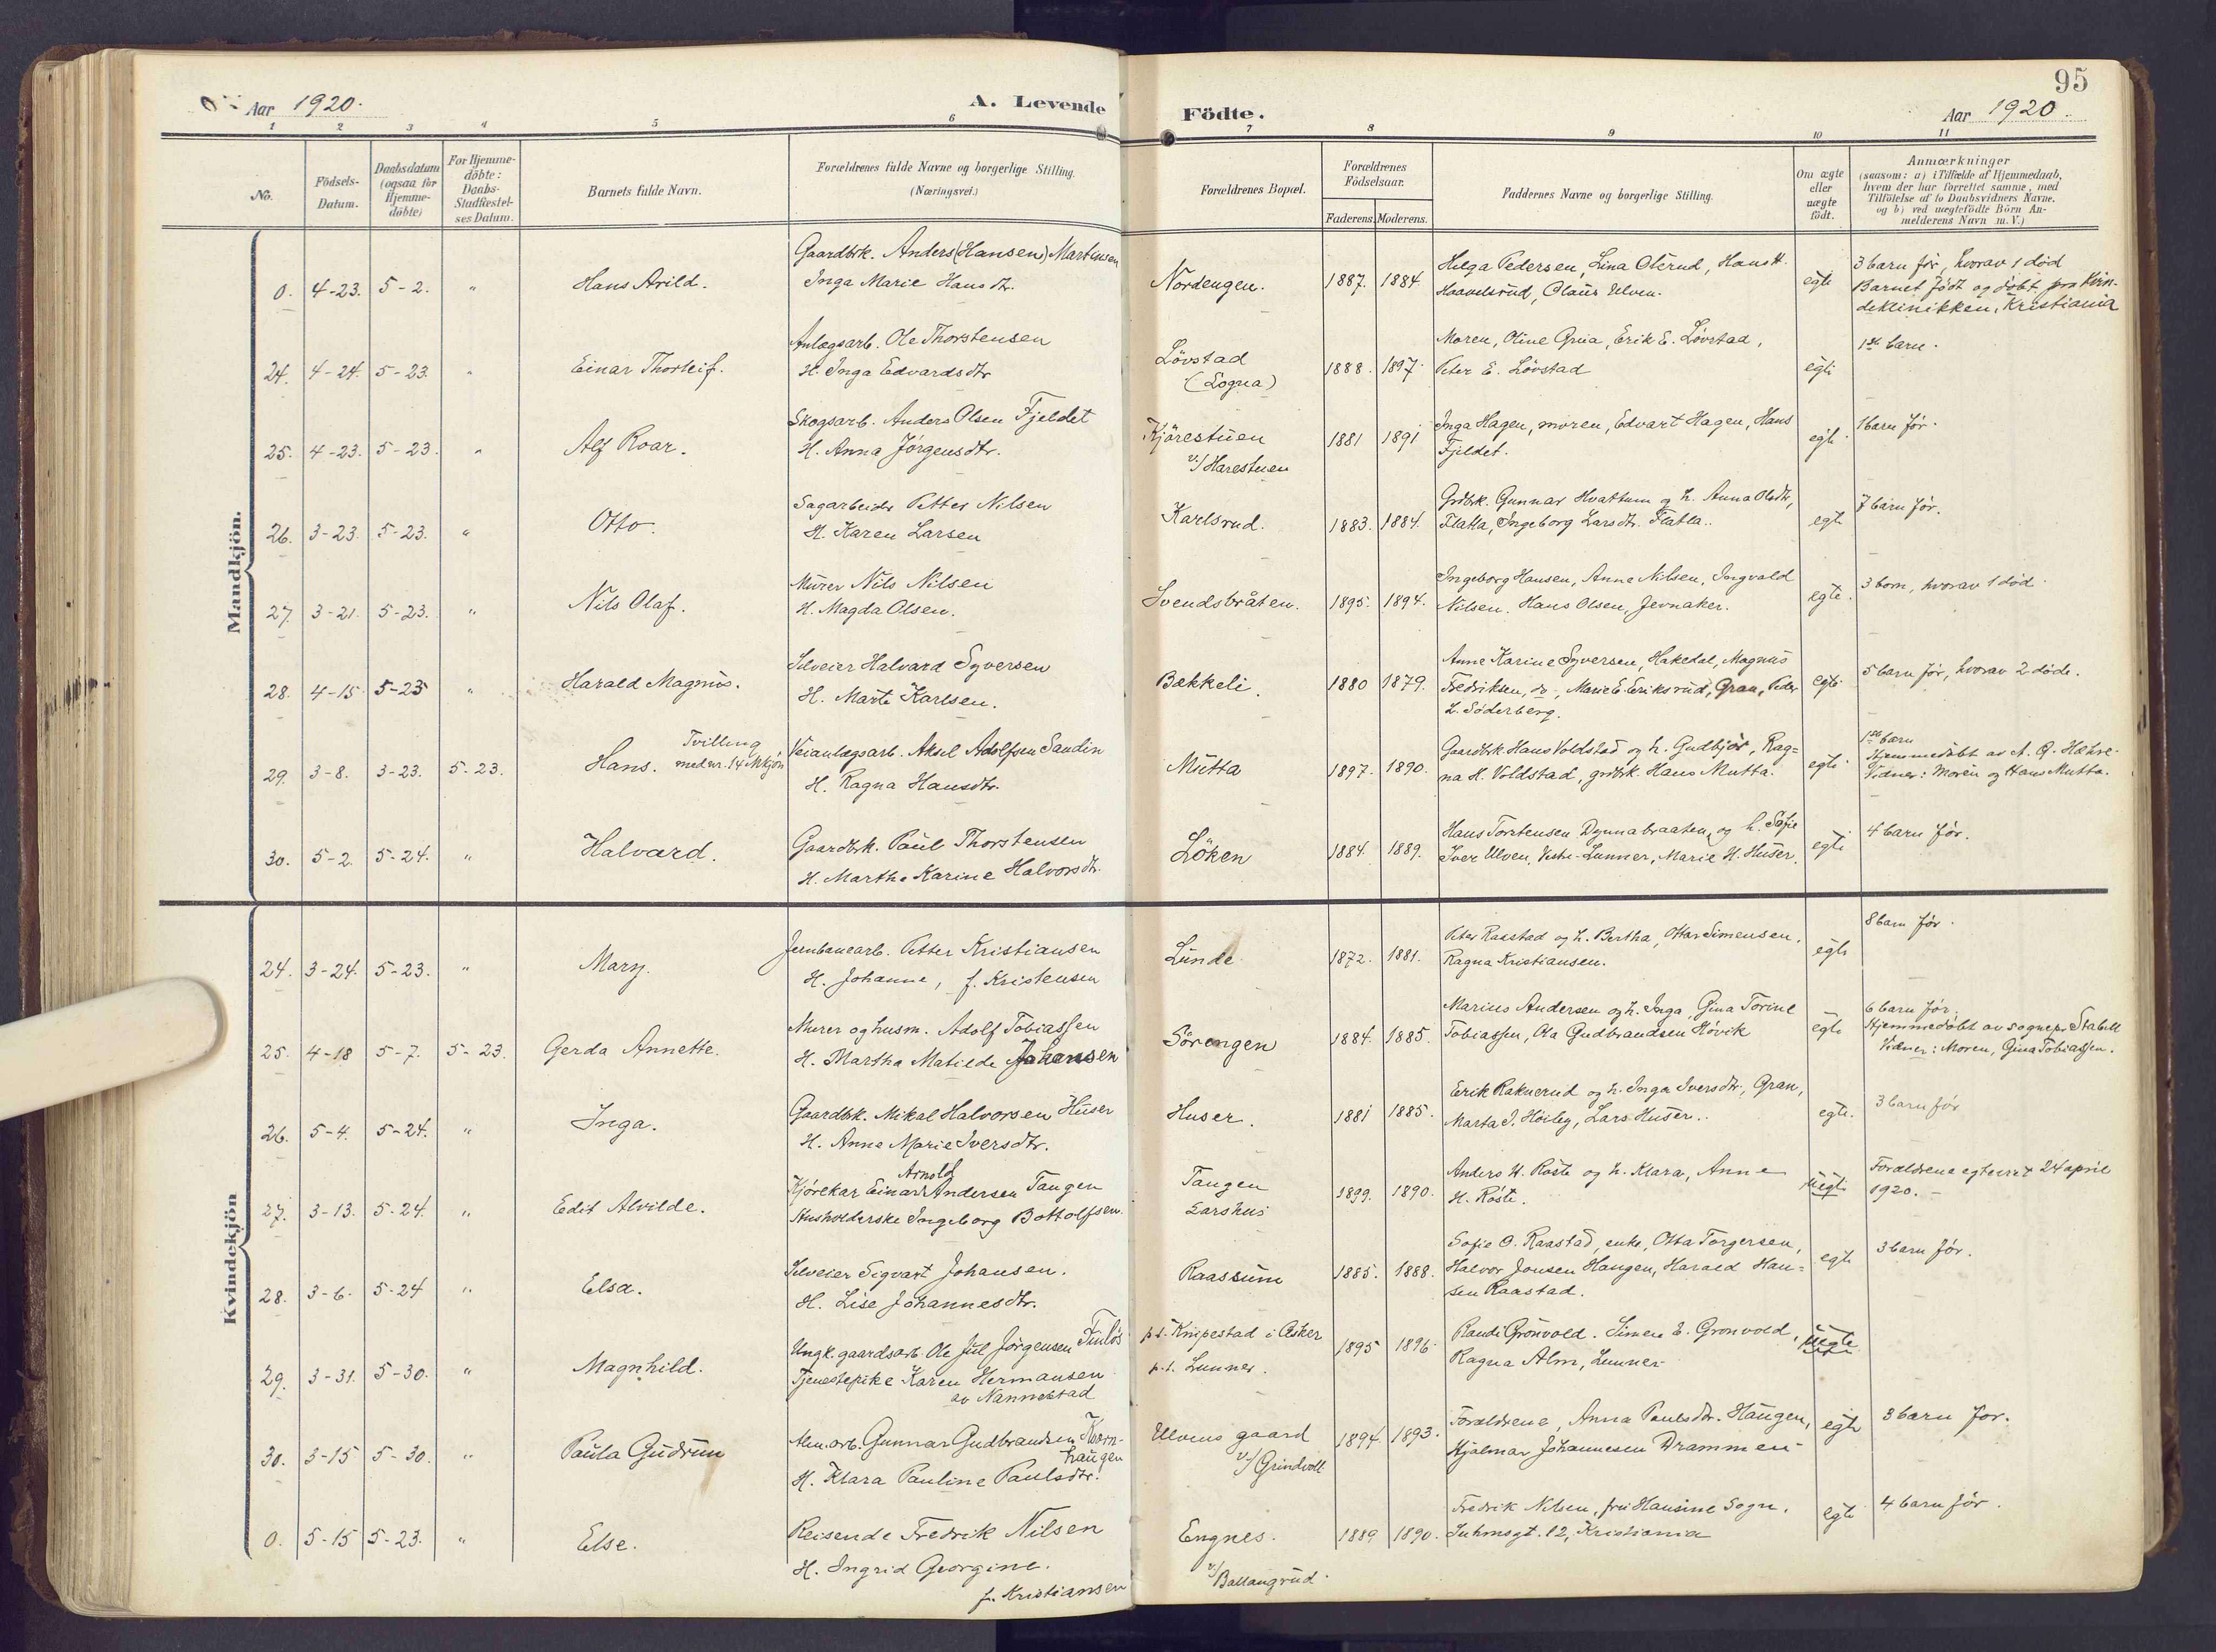 95
Aar 1920.
A. Levende Födte.
Aar 1920.
1 2 3 4 5 6 7 8 9 10 11
No.
Födsels-
Datum.
Daabsdatum
(ogsaa for
Hjemme-
döbte)
For Hjemme-
döbte:
Daabs-
Stadfæstel-
ses Datum.
Barnets fulde Navn.
Forældrenes fulde Navne og borgerlige Stilling.
(Næringsvei.)
Forældrenes Bopæl.
Forældrenes
Födselsaar.
Faderens. Moderens.
Faddernes Navne og borgerlige Stilling.
Om ægte
eller
uægte
födt.
Anmærkninger
(saasom: a) i Tilfælde af Hjemmedaab,
hvem der har forrettet samme, med
Tilföielse af to Daabsvidners Navne,
og b) ved uægtefödte Börn An-
melderens Navn m. V.)
Mandkjön.
0. 4-23. 5-2. " Hans Arild.
Gaardbrk. Anders (Hansen) Martinsen
Inga Marie Hansdtr.
Nordengen. 1887. 1884
Helga Pedersen, Lina Olerud, Hans H.
Haavelsrud, Olaus Ulven.
egte
3 barn før, hvorav 1 død
Barnet født og døbt paa Kvin-
deklinikken, Kristiania
24. 4-24. 5-23. " Einar Thorleif.
Anlægsarb. Ole Thorstensen
H. Inga Edvardsdtr
Lövstad
(Sogna)
1888. 1897.
Moren, Oline Grua, Erik E. Løvstad,
Peter E. Lövstad
egte
1ste barn.
25. 4-23. 5-23. " Alf Roar.
Skogsarb. Anders Olsen Fjeldet
H. Anna Jørgensdtr.
Kjörestuen
v/ Harestuen
1881 1891
Inga Hagen, moren, Edvart Hagen, Hans
Fjeldet.
egte
1 barn før.
26. 3-23. 5-23. " Otto.
Sagarbeider Petter Nilsen
H. Karen Larsen
Karlsrud. 1883. 1884.
Grdbrk. Gunnar Hvattum og h. Anna Olsdtr,
Flatla, Ingeborg Larsdtr. Flatla.
egte
7 barn før.
27. 3-21. 5-23. " Nils Olaf.
Murer Nils Nilsen
H. Magda Olsen.
Svendsbråten. 1895. 1894.
Ingeborg Hansen, Anne Nilsen, Ingvald
Nilsen. Hans Olsen, Jevnaker.
egte.
3 barn, hvorav 1 død.
28. 4-15 5-23 " Harald Magnus.
Selveier Halvard Syversen
H. Marte Karlsen.
Bækkeli. 1880 1879.
Anne Karine Syversen, Hakedal, Magnus
Fredriksen, do., Marie E. Eriksrud, Gran, Peder
L. Søderberg.
egte
5 barn før, hvorav 2 døde.
29. 3-8. 3-23. 5-23. Hans.
Tvilling
med nr. 14 Mkjøn
Veianlægsarb. Aksel Adolfsen Sandin
H. Ragna Hansdtr.
Mutta 1897. 1890.
Gaardbrk. Hans Voldstad og h. Gudbjør, Rag-
na H. Voldstad, grdbrk. Hans Mutta.
egte
1ste barn
Hjemmedøbt av A. Q. Hæhre.
Vidner: Moren og Hans Mutta.
30. 5-2. 5-24. " Halvard.
Gaardbrk. Paul Thorstensen
H. Marthe Karine Halvorsdtr.
Löken 1884 1889.
Hans Torstensen Dynnabraaten, og h. Sofie
Iver Ulven, Vestre-Lunner, Marie H. Huser.
egte
4 barn før.
Kvindekjön
24. 3-24. 5-23. " Mary.
Jernbanearb. Petter Kristiansen
H. Johanne, f. Kristensen
Lunde 1872. 1881.
Peter Raastad og h. Bertha, Ottar Simensen.
Ragna Kristiansen.
egte
8 barn før.
25. 4-18 5-7. 5-23. Gerda Annette.
Murer og husm. Adolf Tobiassen
H. Martha Matilde Johansen
Sörengen 1884. 1885.
Marius Andersen og h. Inga, Gina Torine
Tobiassen, Ola Gudbrandsen Høvik
egte
6 barn før.
Hjemmedøbt av sognepr. Stabell
Vidner: Moren, Gina Tobiassen.
26. 5-4. 5-24. " Inga.
Gaardbrk. Mikal Halvorsen Huser
H. Anne Marie Iversdtr.
Huser. 1881 1885.
Erik Raknerud og h. Inga Iversdtr, Gran,
Marta I. Høiby, Lars Huser.
egte.
3 barn før
27. 3-13. 5-24. " Edit Alvilde.
Arnold
Kjørekar Einar Andersen Tangen
Husholderske Ingeborg Bottolfsen.
Tangen
Larshus
1899. 1890.
Anders H. Røste og h. Klara, Anne
H. Røste.
uegte
Foreldrene egteviet 24 april
1920.-
28. 3-6. 5-24 " Elsa.
Selveier Sigvart Johansen.
H. Lise Johannesdtr.
Raassum 1885. 1888.
Sofie O. Raastad, enke, Otta Torgersen,
Halvor Jonsen Haugen, Harald Han-
sen Raastad.
egte
3 barn før.
29. 3-31. 5-30. " Magnhild.
Ungk. gaardsarb. Ole Jul Jørgensen
Tjenestepike Karen Hermansen
av Nannestad
p.t. Knipestad i Asker
p.t. Lunner.
1895 1896
Randi Grönvold. Simen E. Grønvold,
Ragna Alm, Lunner
uegte
30. 3-15 5-30. " Paula Gudrun
Alm. arb. Gunnar Gudbrandsen Kværn-
haugen
H. Klara Pauline Paulsdtr.
Ulvens gaard
v/ Grindvoll
1894 1893.
Foreldrene, Anna Paulsdtr. Haugen,
Hjalmar Johannesen Drammen-
egte
3 barn før.
0. 5-15 5-23. " Else.
Reisende Fredrik Nilsen
H. Ingrid Georgine.
f. Kristiansen
Engnes.
v/ Ballangrud.
1889 1890.
Fredrik Nilsen, fru Hansine Sogn.
Suhmsgt. 12, Kristiania
egte
4 barn før.